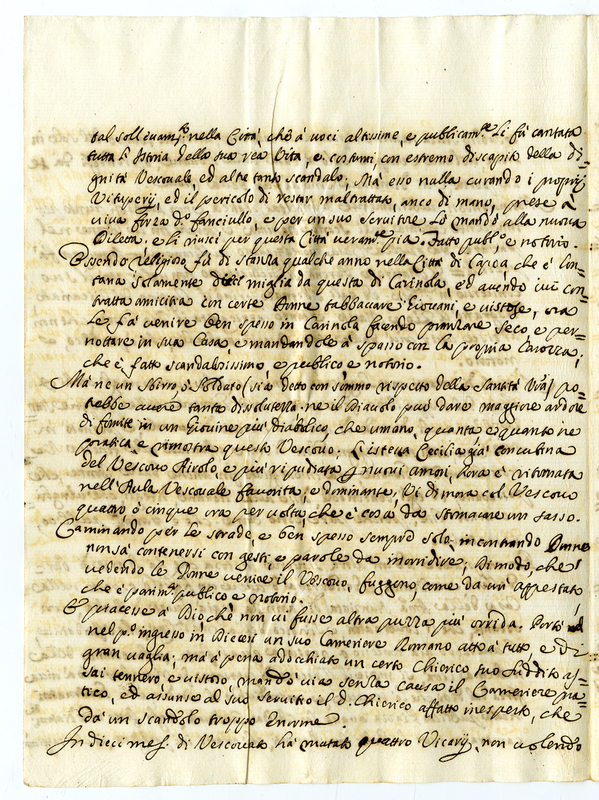 tal sollevam.to nella Città, che à voci altissime, e publicam.te li fù cantata
tutta l'Istoria della sua rea Vita, e costumi con estremo discapito della di=
gnità Vescovale, ed altetanto scandalo; Mà esso nulla curando i proprij
Vituperij, ed il pericolo di restar maltrattato, anco di mano, prese à
viva forza d.o fanciullo, e per un suo Servitore Lo mandò alla nuova
Diletta. e li riuscì per questa Città veram.te pia. Fatto publ.o e notorio.
Essendo religioso fù di stanza qualche anno nella Città di Capoa che è lon=
tana solamente miglia da questa di Carinola, ed avendo ivi con=
tratta amicitia con certe Donne tabbaccare Giovani, e vistose, ora
Le fà venire ben spesso in Carinola facendo pranzare seco e per=
nottare in sua Casa, e mandandole à spasso con la propria Carozza;
che è fatto scandalosissimo, e publico e notorio.
Mà ne un Sbirro, ò Soldato (sia detto con sommo rispetto della Santità V'ra) po=
trebbe avere tanta dissolutezza. ne il Diavolo può dare maggiore ardore
di fomite in un Giovine più diabolico, che umano, quanta e quanto ne
pratica, e rimostra questo Vescovo. L'istessa Cecilia già concubina
del Vescovo Airolo, e più ripudiata p nuovi amori, hora è ritornata
nell'Aula Vescovale favorita, e dominante, Vi dimora col Vescovo
quattro ò cinque ora per volta, che è cosa da stomacare un sasso.
Caminando per le strade, e ben spesso sempre solo, incontrando Donne
non sà contenersi con gesti, e parole da inorridire; Dimodo, che
vedendo le Donne venire il Vescovo, fuggono, come da un'appestato,
che è parim.te publico e notorio.
E piacesse à Dio che non vi fusse altra puzza più orrida. Portò
nel p.o ingresso in Diocesi un suo Cameriere Romano atto à tutto, e di
gran vaglia; mà à pena adocchiato un certo Chierico suo suddito as=
sai tennero e vistoso, mandò via senza causa il Cameriere pra=
tico, ed assunse al suo servitio il d. Chierico affatto inesperto, che
dà un scandolo troppo Enorme.
In dieci mesi di Vescovato hà mutato quattro Vicarij, non volendo